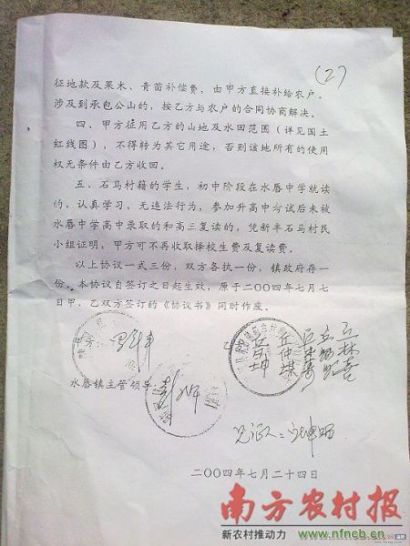 (2)
征地款及果木、青苗补偿费，由甲方直接补给农户。
涉及到承包公山的，按乙方与农户的合同协商解决。
四、甲方征用乙方的山地及水田范围（详见国土
红线图），不得转为其它用途，否则该地所有的使用
权无条件由乙方收回。
五、石马村籍的学生，初中阶段在水唇中学就读
的，认真学习，无违法行为，参加升高中考试后未被
水唇中学高中录取的和高三复读的，凭新丰石马村民
小组证明，甲方可不再收取择校生费及复读费。
以上协议一式三份，双方各执一份，镇政府存一
份。本协议自签订之日起生效，原于二00四年七月七
日甲、乙双方签订的《协议书》同时作废。
水唇镇主管领导：
见证人：
二00四年七月二十四日
南方农村报
新农村推动力 www.nfncb.cn